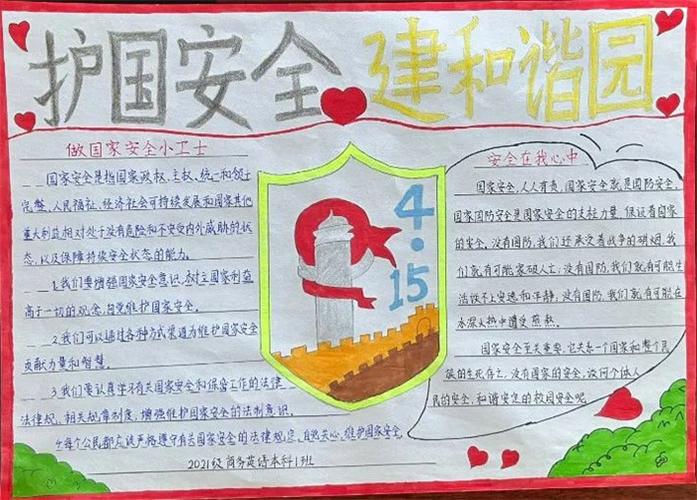 护国安全 建和谐园
做国家安全小卫士
国家安全是指国家政权、主权、统一和领土
完整、人民福祉、经济社会可持续发展和国家其他
重大利益相对处于没有危险和不受内外威胁的状
态,以及保障持续安全状态的能力。
1.我们要增强国家安全意识,树立国家利益
高于一切的观念,自觉维护国家安全。
2.我们可以通过各种方式渠道为维护国家安全
贡献力量和智慧。
3.我们要认真学习有关国家安全和保密工作的法律
法规、相关规章制度,增强维护国家安全的法制意识。
4.每个公民都应该严格遵守有关国家安全的法律规定,自觉关心、维护国家安全
2021级商务英语本科1班
4·15
安全在我心中
国家安全,人人有责,国家安全就是国防安全,
国家国防安全是国家安全的支柱力量,保证着国家
的安全,没有国防,我们还承受着战争的硝烟,我
们就有可能家破人亡;没有国防,我们就有可能生
活铁不上安逸和平静;没有国防,我们就有可能在
水深火热中遭受煎熬。
国家安全至关重要,它关系一个国家和整个民
族的生死存亡,没有国家的安全,谈何个体人
民的安全,和谐安定的校园安全呢